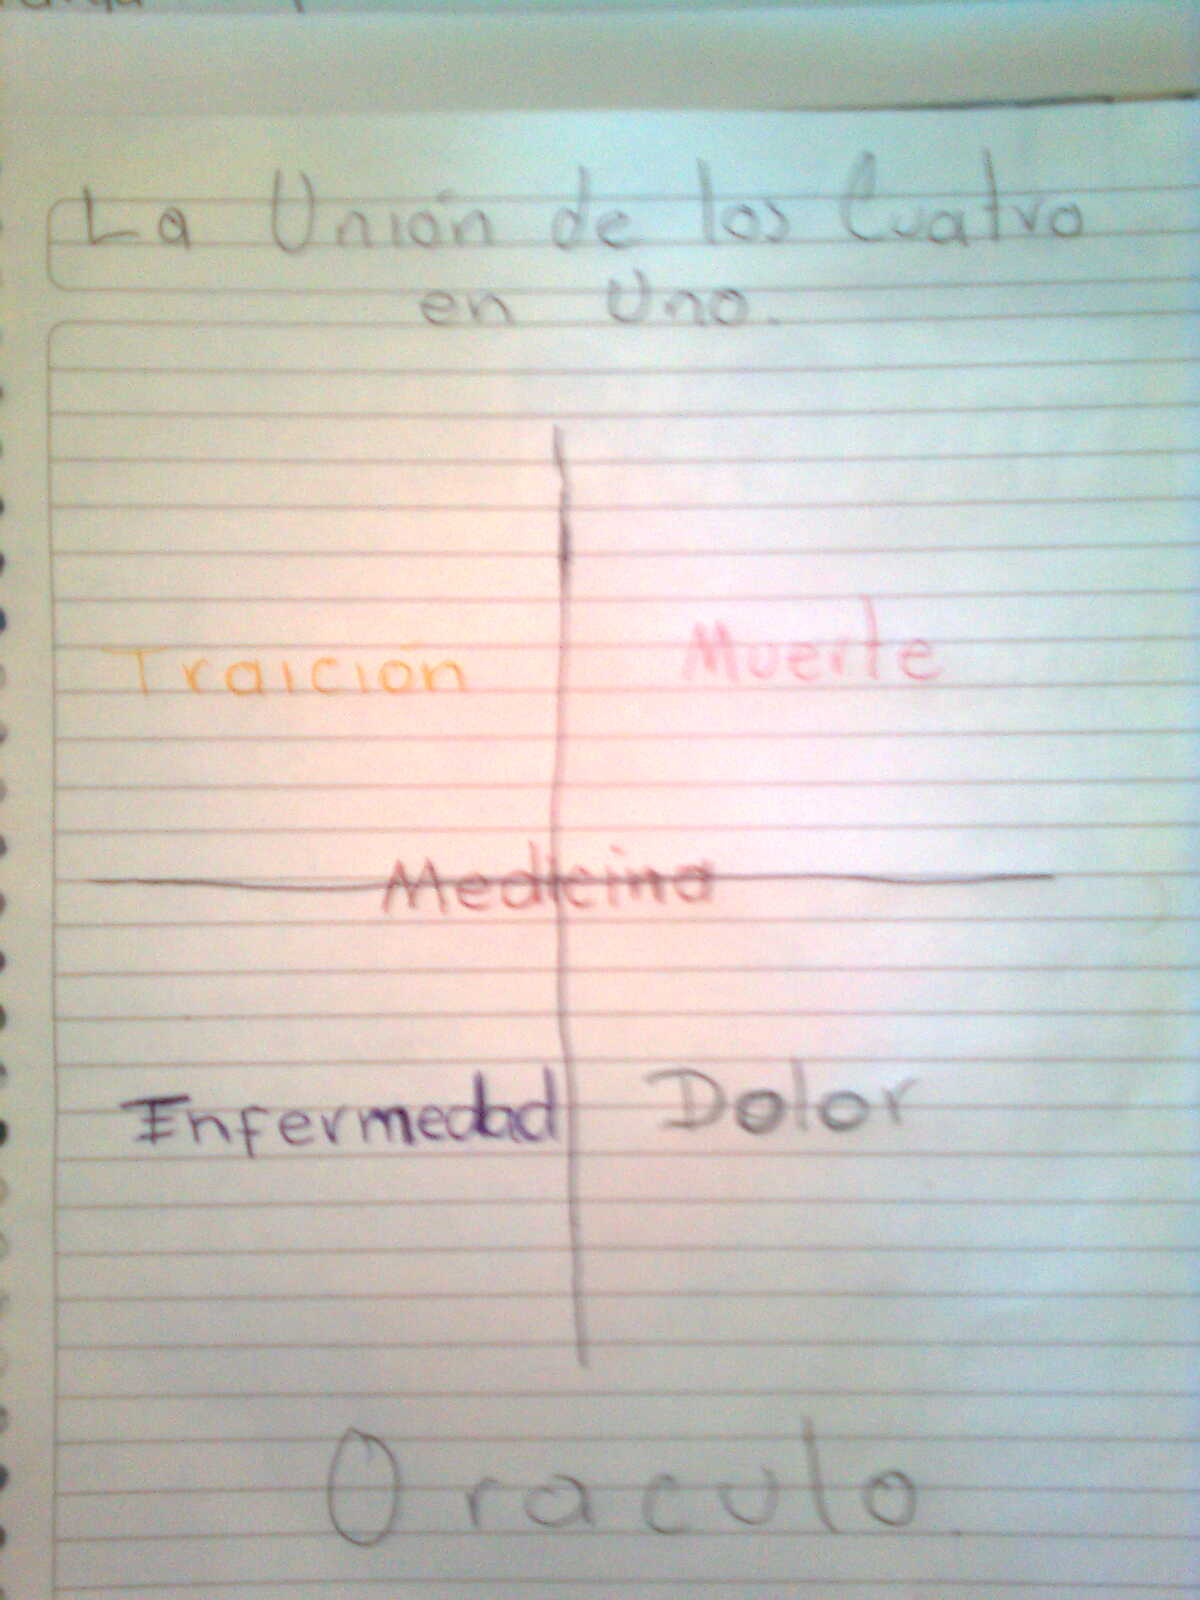 La Unión de los Cuatro
en Uno.
Traición Muerte
Medicina
Enfermedad Dolor
Oraculo.